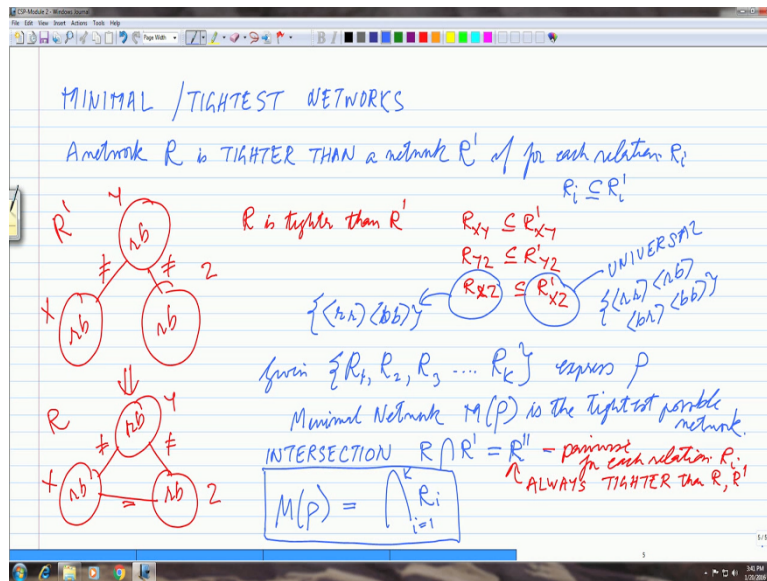 CSP-Module 2 - Windows Journal
File Edit View Insert Actions Tools Help
Page Width
B I
MINIMAL / TIGHTEST NETWORKS
A network R is TIGHTER THAN a network R' if for each relation Ri
Ri ⊆ R'i
R'
Y
rb
≠ ≠
X
rb
Z
rb
R is tighter than R'
RXY ⊆ R'XY
RYZ ⊆ R'YZ
RXZ ⊆ R'XZ
UNIVERSAL
{<rr> <rb>
<br> <bb>}
{<rr> <bb>}
⇓
R
Y
rb
≠ ≠
X
rb
=
rb
Z
Given {R1, R2, R3 .... RK} express ρ
Minimal Network M(ρ) is the tightest possible
network.
INTERSECTION R ∩ R' = R'' - pairwise
for each relation Ri
ALWAYS TIGHTER than R, R'
M(ρ) = ∩ K i=1 Ri
5/5
5
3:41 PM
1/20/2016